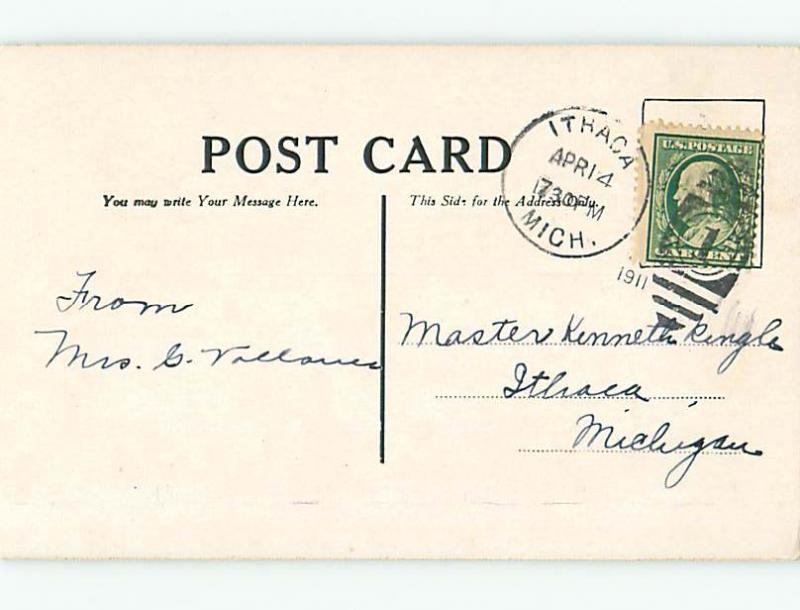 POST CARD
You may write Your Message Here.
This Side for the Address Only.
ITHACA
APR 14
730PM
MICH.
1911
U.S. POSTAGE
1
ONE CENT
From
Mrs. G.
Master Kenneth Ringle
Ithaca,
Michigan